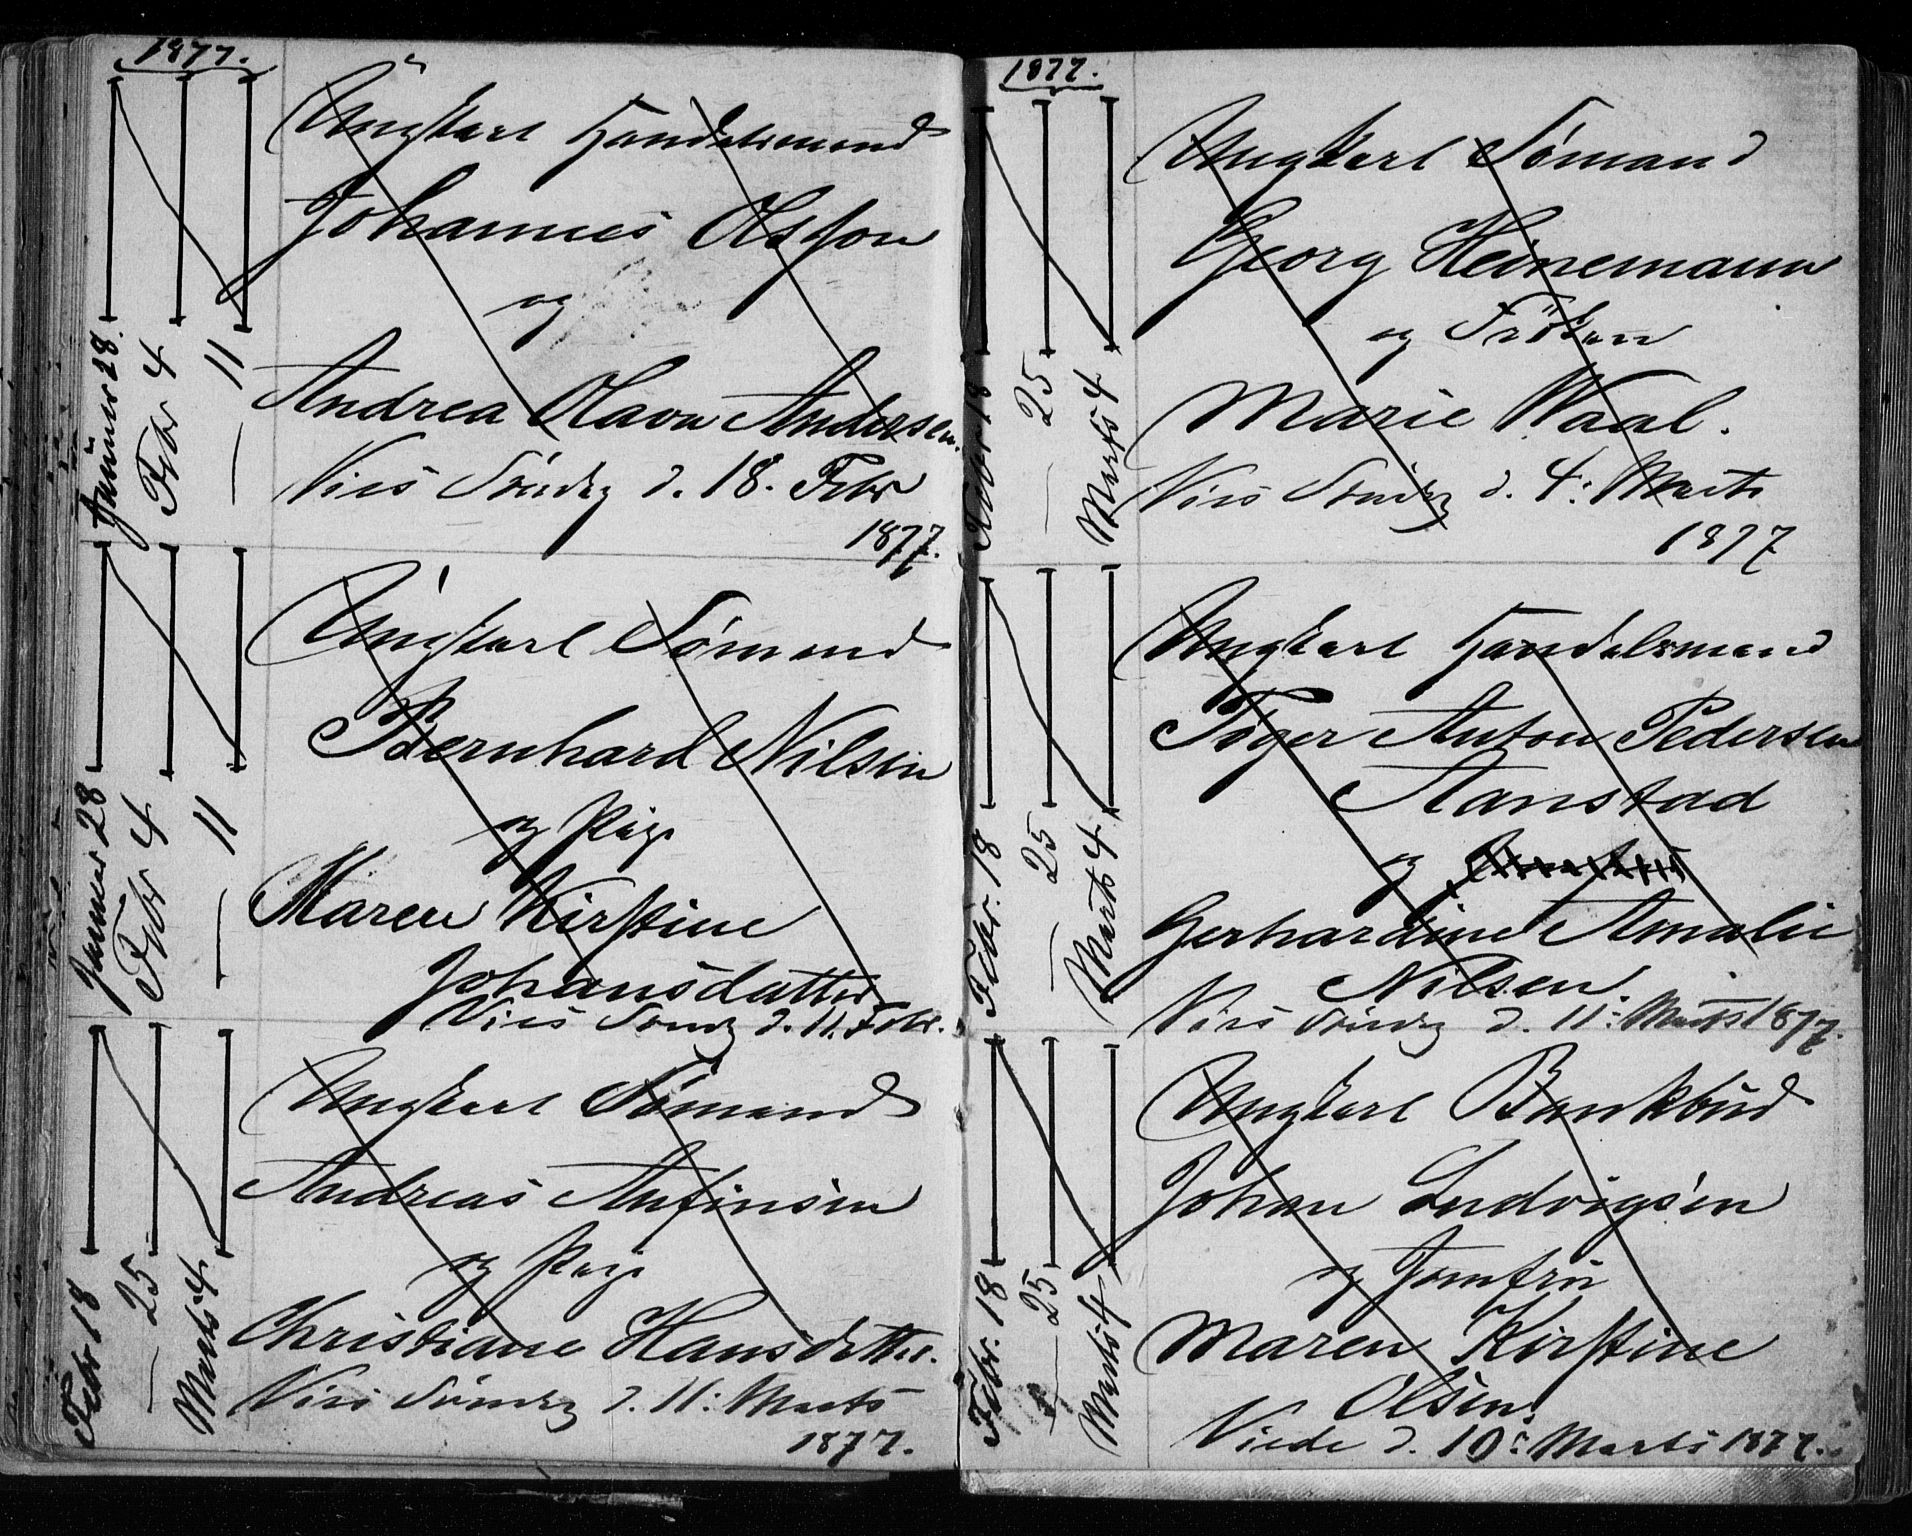 1877.
Januar 28.
Febr 4
— 11
Ungkarl Handelsmand
Johannes Olsson
og
Andrea Olava Andersen.
Vies Søndag d. 18. Febr
1877.
Januar 28
Febr 4
— 11
Ungkarl Sømand
Bernhard Nilsen
og Pige
Maren Kirstine
Johansdatter
Vies Søndg d. 11. Febr.
Febr 18
— 25
Marts 4
Ungkarl Sømand
Andreas Anfinsen
og Pige
Christiane Hansdatter.
Vies Søndag d. 11: Marts
1877.
1877.
Febr 18
— 25
Marts 4
Ungkarl Sømand
Georg Heinemann
og Frøken
Marie Waal.
Vies Søndag d. 4: Marts
1877
Febr. 18
— 25
Marts 4
Ungkarl Handelsmand
Tøger Anton Pedersen
Aanstad
og
Gerhardine Amalie
Nilsen.
Vies Søndag d. 11: Marts 1877.
Febr. 18
— 25
Marts 4
Ungkarl Bankbud
Johan Ludvigsen
og Jomfru
Maren Kirstine
Olsen.
Viede d. 10: Marts 1877.